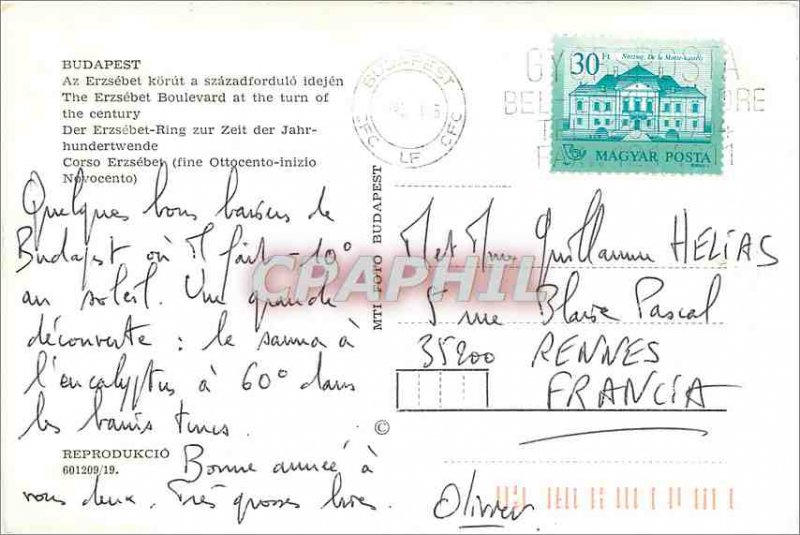 BUDAPEST
Az Erzsébet körút a századforduló idején
The Erzsébet Boulevard at the turn of
the century
Der Erzsébet-Ring zur Zeit der Jahr-
hundertwende
Corso Erzsébet (fine Ottocento-inizio
Novocento)
Quelques bons baisers de
Budapest où il fait -10°
au soleil. Une grande
découverte : le sauna à
l'eucalyptus à 60° dans
les bains turcs.
Bonne année à
vous deux. Très grosses bises.
Olivier
REPRODUKCIÓ
601209/19.
MTI FOTO BUDAPEST
©
BUDAPEST
CFC LF CFC
30 Ft
MAGYAR POSTA
M et Mme Guillaume HELIAS
5 rue Blaise Pascal
35200 RENNES
FRANCIA
CPAPHIL